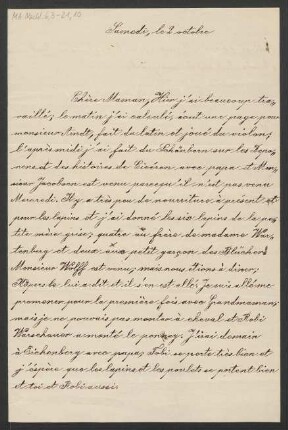 Samedi, le 2 octobre
Chère Maman, Hier j'ai beaucoup tra-
vaillé; le matin j'ai calculé, écrit une page pour
monsieur Arndt, fait du latin et joué du violon;
l'après midi j'ai fait du Schönborn sur les
et des histoires de Cicéron avec papa et Mon-
sieur Jacobsen est venu parcequ'il n'est pas venu
Mercredi. Il y a très peu de nourriture à présent
pour les lapins et j'ai donné les six lapins de la pe-
tite mère grise; quatre au frère de madame War-
tenberg et deux au petit garçon des Blüchers
Monsieur Wolff est venu, mais nous étions à dîner;
le lui a dit et il s'en est allé; Je suis allé me
promener pour la première fois avec Grandmaman;
mais je ne pouvais pas monter à cheval et Robi
Warschauer a monté le poney; J'irai demain
à Eichenberg avec papa; Tobi se porte très bien et
j'espère que les lapins et les poulets se portent bien
et toi et Robi aussi.